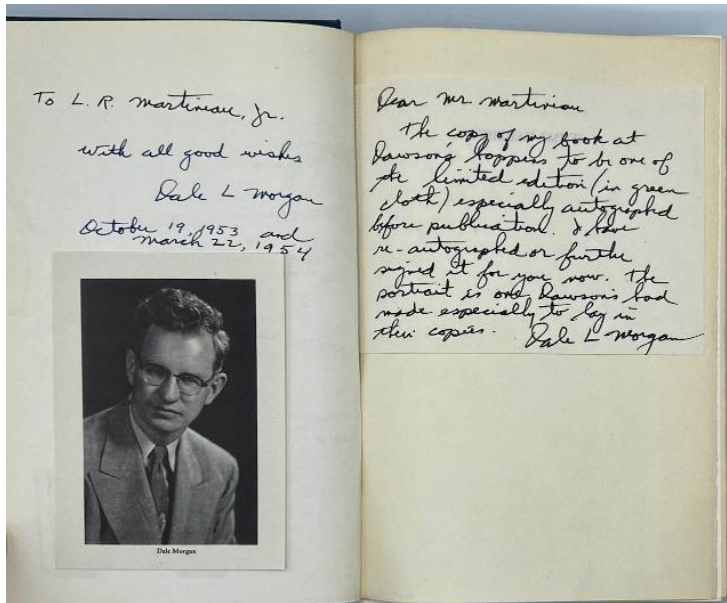 To L. R. Martineau, Jr.
with all good wishes
Dale L Morgan
October 19, 1953 and
March 22, 1954
Dale Morgan
Dear Mr. Martineau
The copy of my book at
Dawson's happens to be one of
the limited edition (in green
cloth) especially autographed
before publication. I have
re-autographed or further
signed it for you now. The
portrait is one Dawson's had
made especially to lay in
their copies. Dale L Morgan